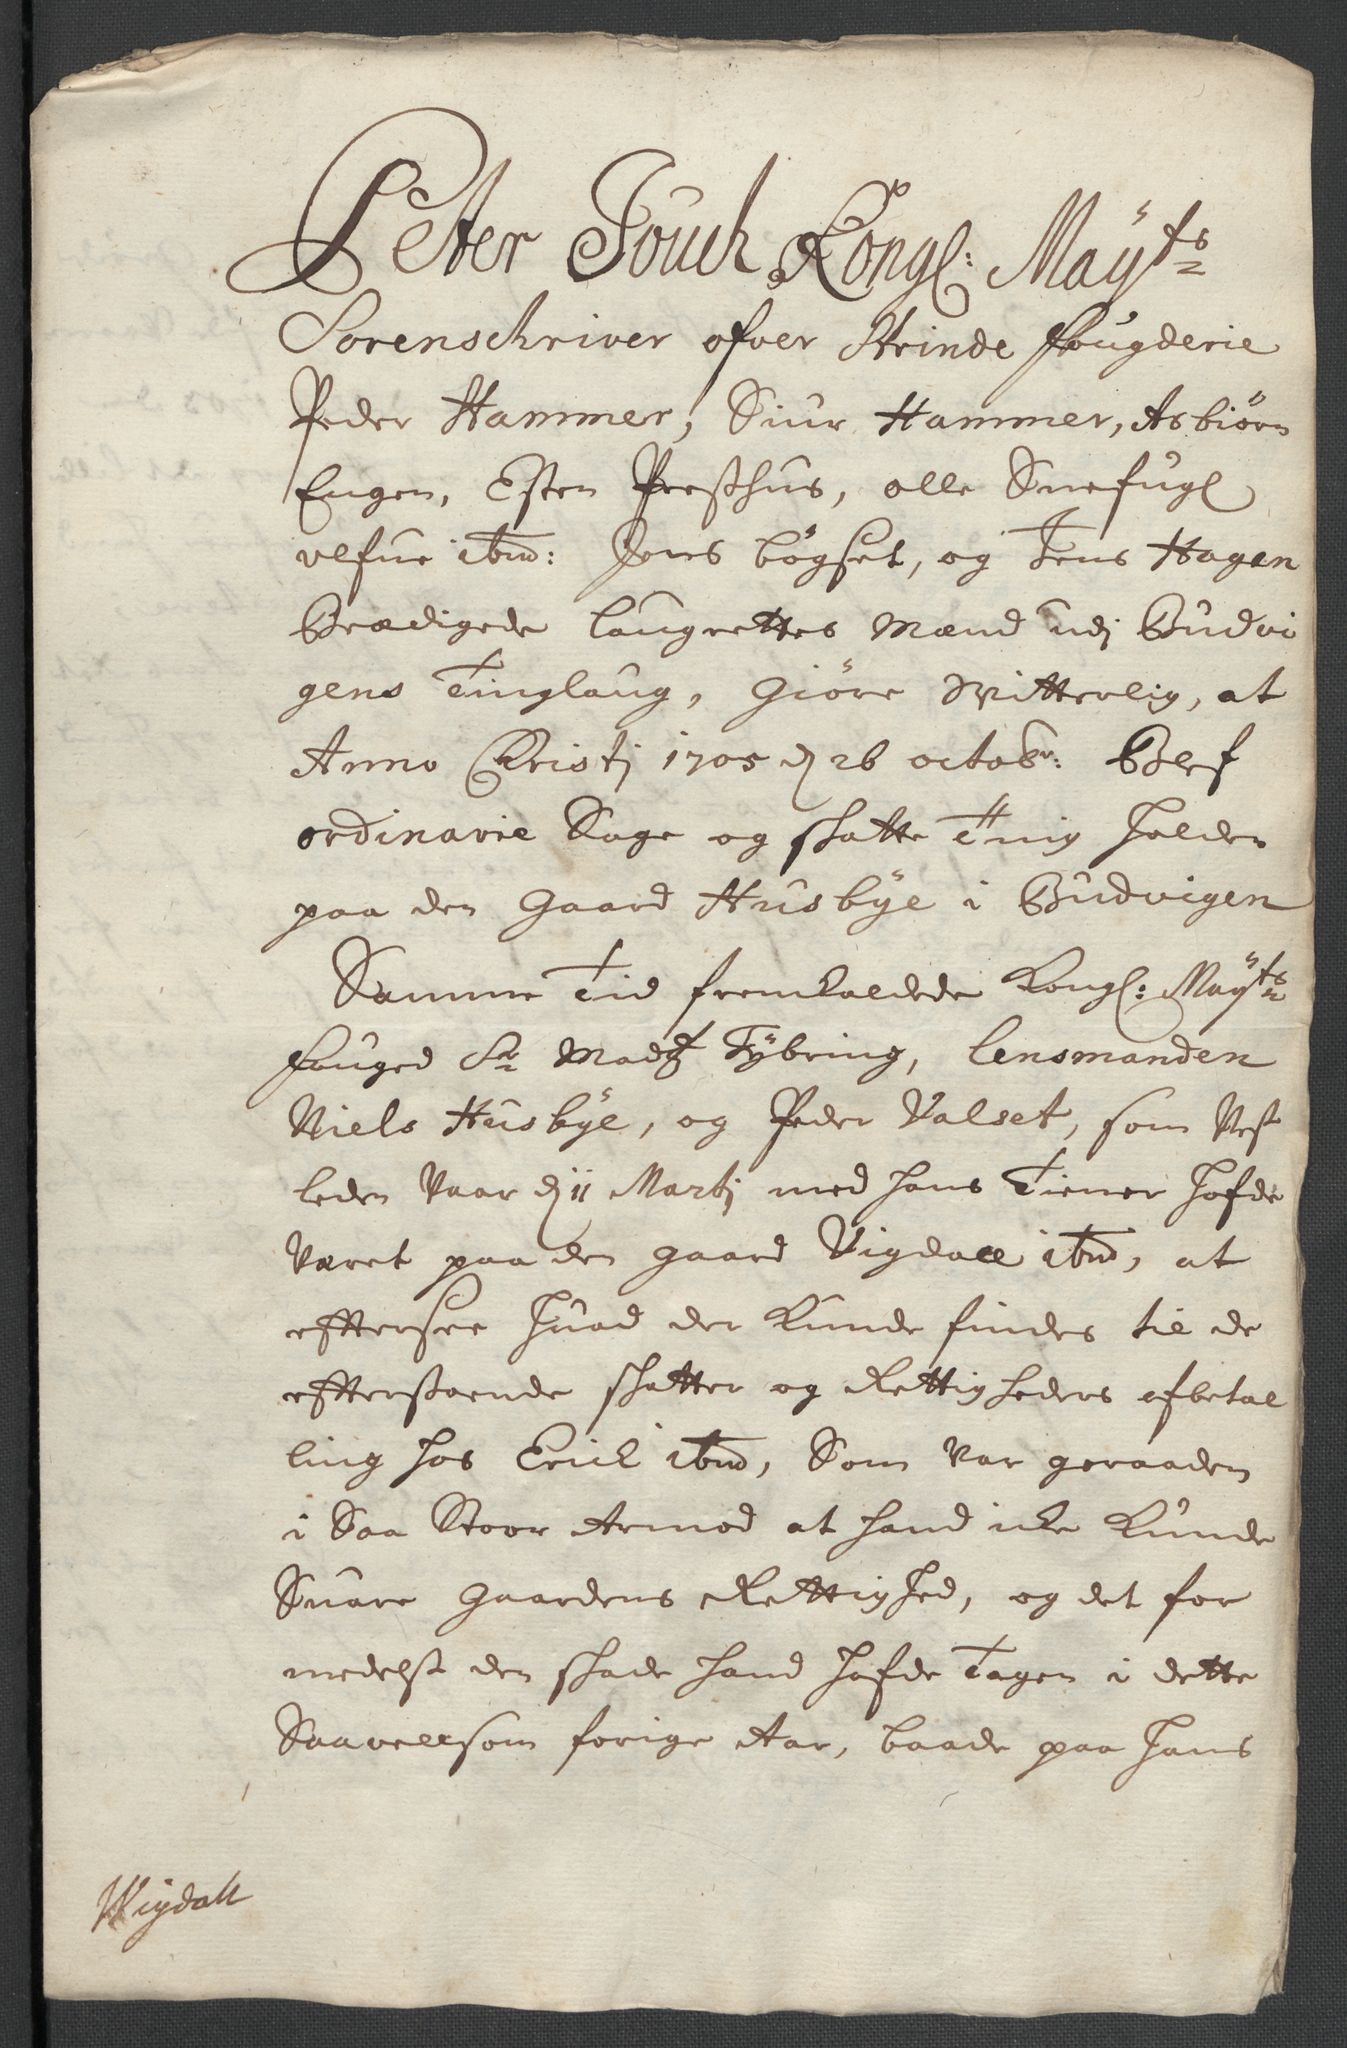 Petter Jouch Kongl: Maÿts
Sorenschriver ofver Strinde fougderie
Peder Hammer, Siur Hammer, Asbiörn
Engen, Esten Presthus, olle Snefugl
velfue ibm: Jens bögset, og Jens Hagen
Beædigede laugrettes Mænd udj Budvi
gens Tinglaug, Giöre Witterlig, at
Anno Christj 1705 d 26 octobr: Blef
ordinarie Sage og skatte Ting holden
paa den gaard Husbÿe i Budvigen
Samme Tid fremkaldede Kongl: Maÿts
fouged Sr Madz Tÿbring, lensmanden
Niels Husbÿe, og Peder Valset, som Nest
leden Vaar d 11 Martj med hans Tiener hafde
Været paa den gaard Vigdall ibm, at
efftersee huad der kunde findes till de
efterstaaende skatter og Rettigheders afbetal
ling hos Erick ibm, Som var geraaden
i Saa Stoor Armod at hand icke kunde
Suare gaardens Rettighed, og det for
medelst den skade hand hafde Tagen i dette
Saavellsom forige Aar, baade paa hans
Wigdall